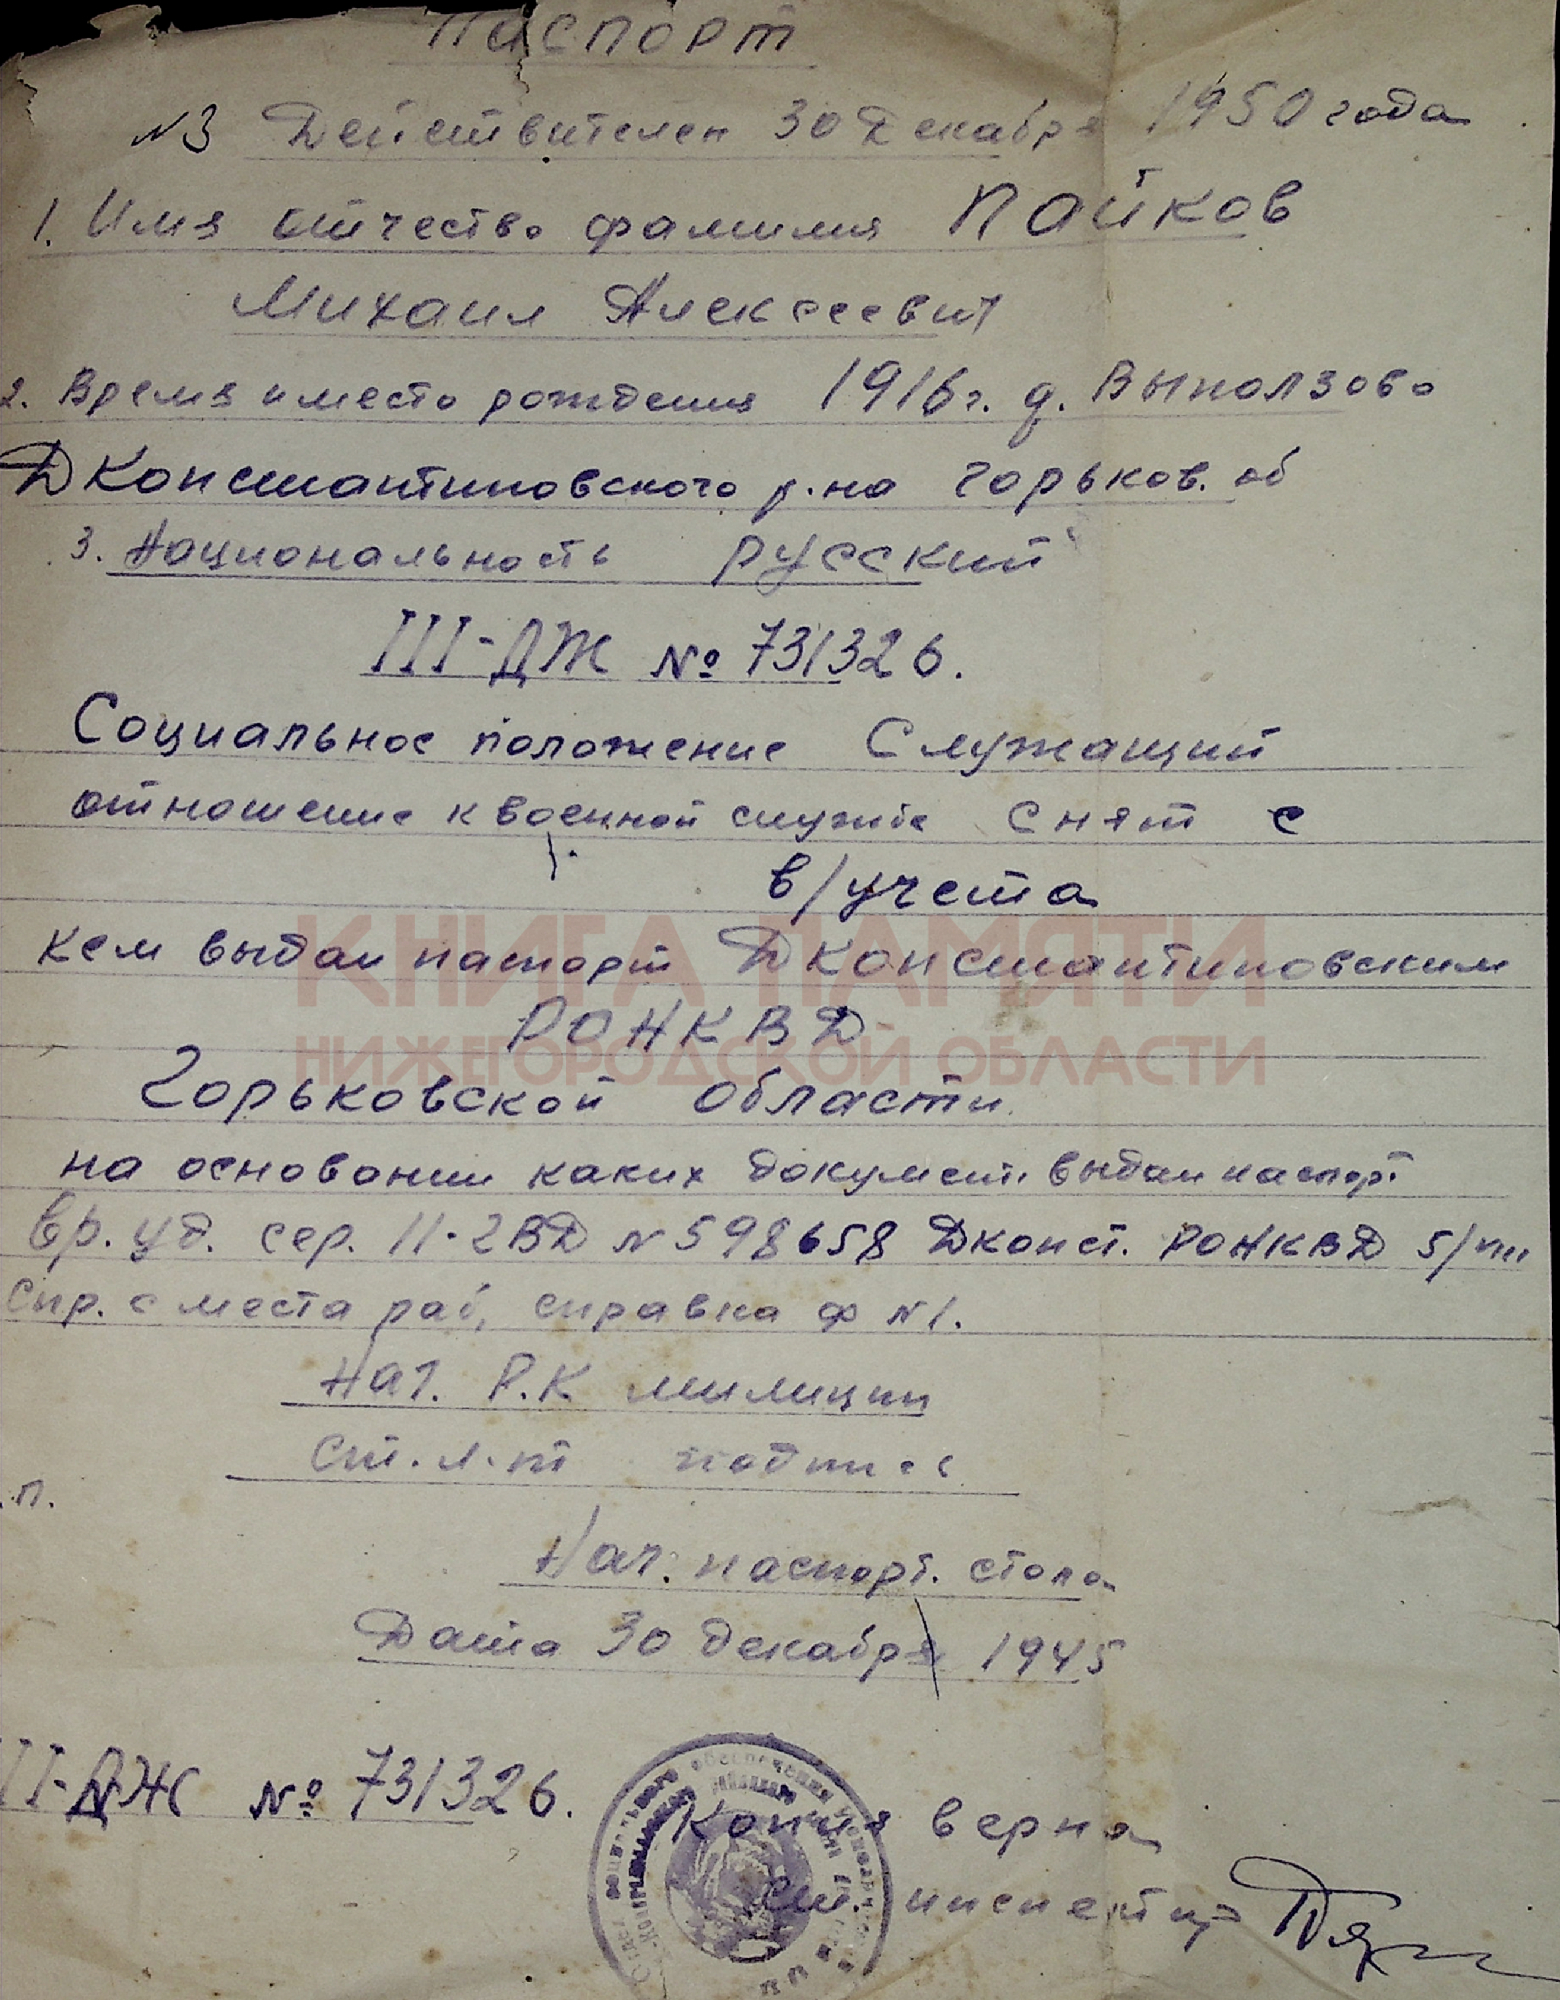 Паспорт
№3 Действителен 30 Декабря 1950 года
1. Имя отчество фамилия Пайков
Михаил Алексеевич
2. Время и место рождения 1916 г. д. Выползово
ДКонстантиновского р-на Горьков. об
3. Национальность русский
III-ДЖ № 731326.
Социальное положение Служащий
отношение к военной службе снят с
в/учета
Кем выдан паспорт ДКонстантиновским
РОНКВД
Горьковской области
на основании каких документ. выдан паспорт
Вр. уд. сер. II-2ВД № 598658 Дконст. РОНКВД
Спр. с места раб, справка ф №1.
Нач. Р.К милиции
Ст. л-т подпись
.п.
Нач. паспорт. стола
Дата 30 декабря 1945
II-ДЖ № 731326.
Копия верна
Ст. инспектор
КНИГА ПАМЯТИ
НИЖЕГОРОДСКОЙ ОБЛАСТИ